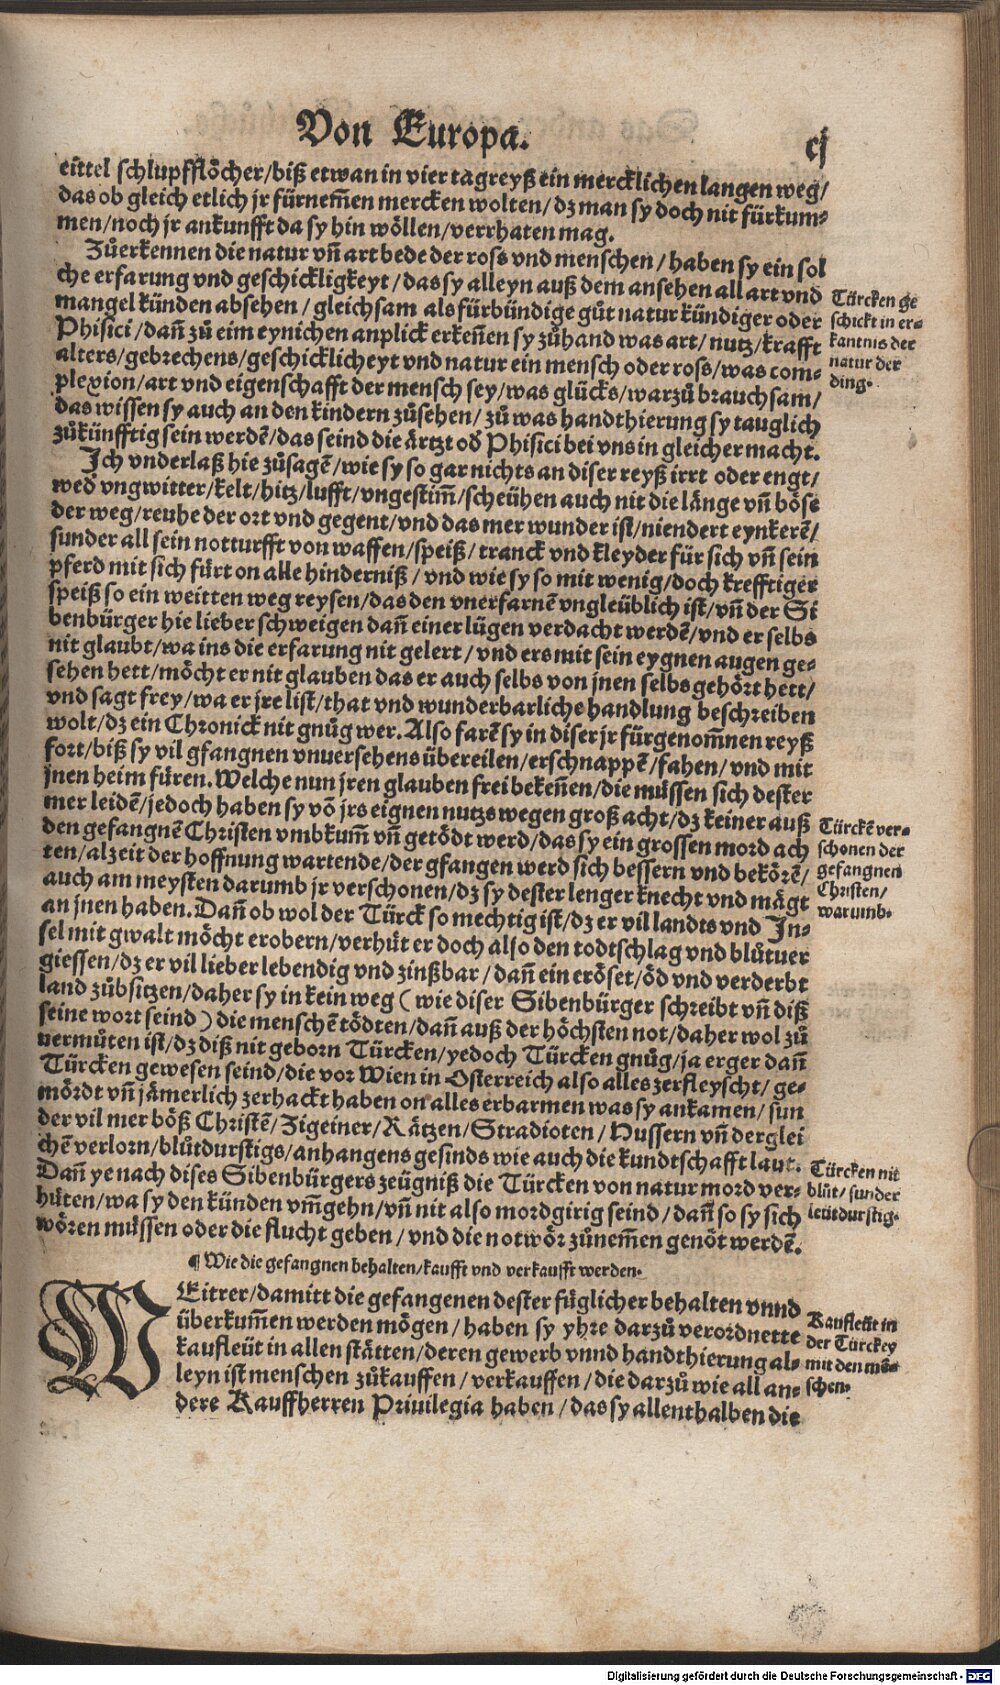 Von Europa.
cj
eittel schlupfflöcher/biß etwan in vier tagreyß ein mercklichen langen weg/
das ob gleich etlich jr fürnem̃en mercken wolten/dz man sy doch nit fürkum-
men/noch jr ankunfft da sy hin wöllen/verrhaten mag.
Zůerkennen die natur vñ art bede der ross vnd menschen/haben sy ein sol
che erfarung vnd geschickligkeyt/das sy alleyn auß dem ansehen all art vnd
mangel künden absehen/gleichsam als fürbündige gůt natur kündiger oder
Phisici/dañ zů eim eynichen anplick erkeñen sy zůhand was art/nutz/krafft
alters/gebrechens/geschicklicheyt vnd natur ein mensch oder ross/was com-
plexion/art vnd eigenschafft der mensch sey/was glücks/warzů brauchsam/
das wissen sy auch an den kindern zůsehen/zů was handthierung sy tauglich
zůkünfftig sein werdẽ/das seind die ärtzt od̕ Phisici bei vns in gleicher macht.
Türcken ge
schickt in er-
kantnis der
natur der
ding.
Ich vnderlaß hie zůsagẽ/wie sy so gar nichts an diser reyß irrt oder engt/
wed̕ vngwitter/kelt/hitz/lufft/vngestim̃/scheühen auch nit die länge vñ böse
der weg/reuhe der ort vnd gegent/vnd das mer wunder ist/niendert eynkerẽ/
sunder all sein notturfft von waffen/speiß/tranck vnd kleyder für sich vñ sein
pferd mit sich fürt on alle hinderniß/vnd wie sy so mit wenig/doch krefftiger
speiß so ein weitten weg reysen/das den vnerfarnẽ vngleüblich ist/vñ der Si
benbürger hie lieber schweigen dañ einer lügen verdacht werdẽ/vnd er selbs
nit glaubt/wa ins die erfarung nit gelert/vnd ers mit sein eygnen augen ge-
sehen hett/möcht er nit glauben das er auch selbs von jnen selbs gehört hett/
vnd sagt frey/wa er jre list/that vnd wunderbarliche handlung beschreiben
wolt/dz ein Chronick nit gnůg wer. Also farẽ sy in diser jr fürgenom̃nen reyß
fort/biß sy vil gfangnen vnuersehens übereilen/erschnappẽ/fahen/vnd mit
jnen heim füren. Welche nun jren glauben frei bekeñen/die müssen sich dester
mer leidẽ/jedoch haben sy võ jrs eignen nutzs wegen groß acht/dz keiner auß
den gefangnẽ Christen vmbkum̃ vñ getödt werd/das sy ein grossen mord ach
ten/alzeit der hoffnung wartende/der gfangen werd sich bessern vnd bekörẽ/
auch am meysten darumb jr verschonen/dz sy dester lenger knecht vnd mägt
an jnen haben. Dañ ob wol der Türck so mechtig ist/dz er vil landts vnd In-
sel mit gwalt möcht erobern/verhüt er doch also den todtschlag vnd blůtuer
giessen/dz er vil lieber lebendig vnd zinßbar/dañ ein eröset/öd vnd verderbt
land zůbsitzen/daher sy in kein weg (wie diser Sibenbürger schreibt vñ diß
seine wort seind) die menschẽ tödten/dañ auß der höchsten not/daher wol zů
vermůten ist/dz diß nit geborn Türcken/yedoch Türcken gnůg/ja erger dañ
Türcken gewesen seind/die vor Wien in Osterreich also alles zerfleyscht/ge-
mördt vñ jämerlich zerhackt haben on alles erbarmen was sy ankamen/sun
der vil mer böß Christẽ/Zigeiner/Rätzen/Stradioten/Hussern vñ derglei
chẽ verlorn/blůtdurstigs/anhangens gesinds wie auch die kundtschafft laut.
Dañ ye nach dises Sibenbürgers zeügniß die Türcken von natur mord ver-
hüten/wa sy den künden vm̃gehn/vñ nit also mordgirig seind/dañ so sy sich
wören müssen oder die flucht geben/vnd die notwör zůnem̃en genöt werdẽ.
Türckẽ ver-
schonen der
gefangnen
Christen/
warumb.
Türcken nit
blůt/sunder
leütdurstig.
¶ Wie die gefangnen behalten/kaufft vnd verkaufft werden.
WEitrer/damitt die gefangenen dester füglicher behalten vnnd
überkum̃en werden mögen/haben sy yhre darzů verordnette
kaufleüt in allen stätten/deren gewerb vnnd handthierung al-
leyn ist menschen zůkauffen/verkauffen/die darzů wie all an-
dere Kauffherren Priuilegia haben/das sy allenthalben die
Kaufleüt in
der Türckey
mit den mẽ-
schen.
Digitalisierung gefördert durch die Deutsche Forschungsgemeinschaft - DFG